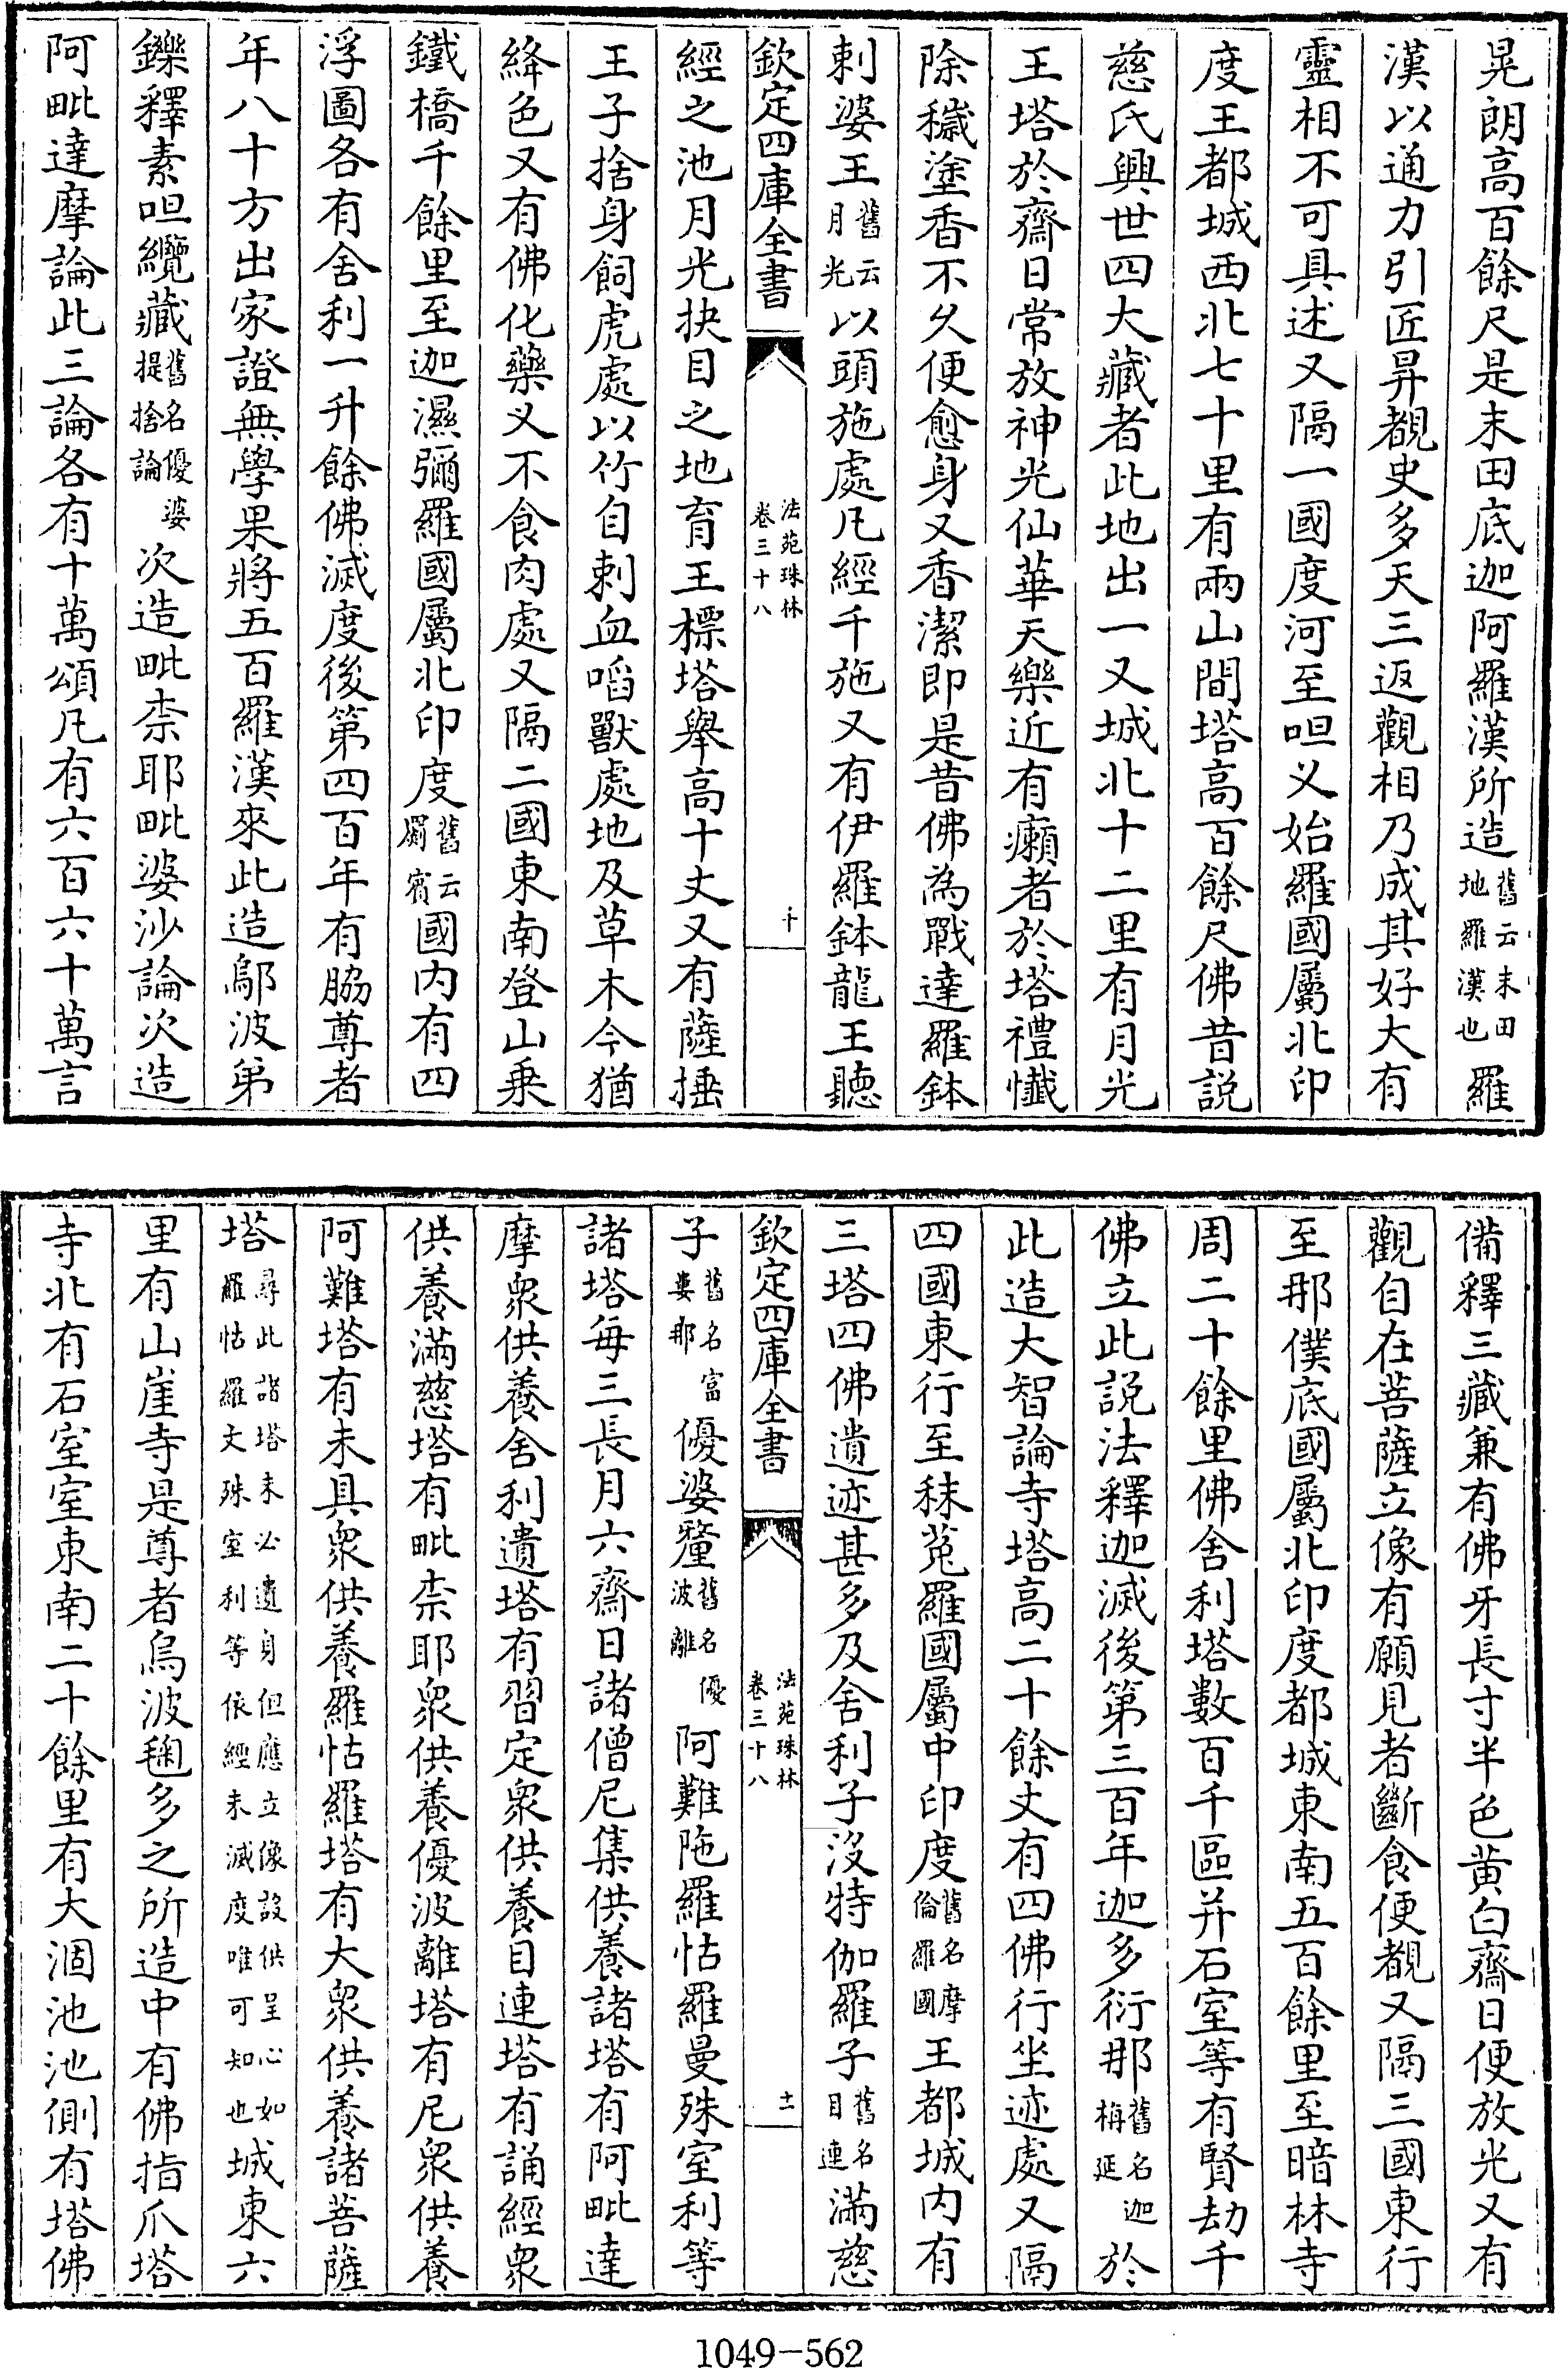 晃朗高百餘尺是末田底迦阿羅漢所造舊云末田地羅漢也羅
漢以通力引匠昇覩史多天三返觀相乃成其好大有
靈相不可具述又隔一國度河至呾义始羅國屬北印
度王都城西北七十里有兩山間塔高百餘尺佛昔説
慈氏興世四大藏者此地出一又城北十二里有月光
王塔於齋日常放神光仙華天樂近有癩者於塔禮懺
除穢塗香不久便愈身又香潔即是昔佛為戰達羅鉢
剌婆王舊云月光以頭施處凡經千施又有伊羅鉢龍王聽
欽定四庫全書
法苑珠林
卷三十八
十
經之池月光抉目之地育王標塔舉高十丈又有薩捶
王子捨身飼虎處以竹自剌血㗖獸處地及草木今猶
絳色又有佛化藥义不食肉處又隔二國東南登山乗
鐵橋千餘里至迦濕彌羅國屬北印度舊云罽賓國内有四
浮圖各有舍利一升餘佛滅度後第四百年有脇尊者
年八十方出家證無學果將五百羅漢來此造鄔波弟
鑠釋素呾纜藏舊名優婆提捨論次造毗柰耶毗婆沙論次造
阿毗達摩論此三論各有十萬頌凡有六百六十萬言
備釋三藏兼有佛牙長寸半色黄白齋日便放光又有
觀自在菩薩立像有願見者斷食便覩又隔三國東行
至那僕底國屬北印度都城東南五百餘里至暗林寺
周二十餘里佛舍利塔數百千區并石室等有賢劫千
佛立此説法釋迦滅後第三百年迦多衍那舊名迦栴延於
此造大智論寺塔高二十餘丈有四佛行坐迹處又隔
四國東行至秣菟羅國屬中印度舊名摩偷羅國王都城内有
三塔四佛遺迹甚多及舍利子沒特伽羅子舊名目連滿慈
欽定四庫全書
法苑珠林
卷三十八
十一
子舊名富婁那優婆釐舊名優波離阿難陁羅怙羅曼殊室利等
諸塔每三長月六齋日諸僧尼集供養諸塔有阿毗達
摩衆供養舍利遺塔有習定衆供養目連塔有誦經衆
供養滿慈塔有毗柰耶衆供養優波離塔有尼衆供養
阿難塔有未具衆供養羅怙羅塔有大衆供養諸菩薩
塔尋此諸塔未必遺身但應立像設供呈心如羅怙羅文殊室利等依經未滅度唯可知也城東六
里有山崖寺是尊者烏波毱多之所造中有佛指爪塔
寺北有石室室東南二十餘里有大涸池池側有塔佛
1049-562